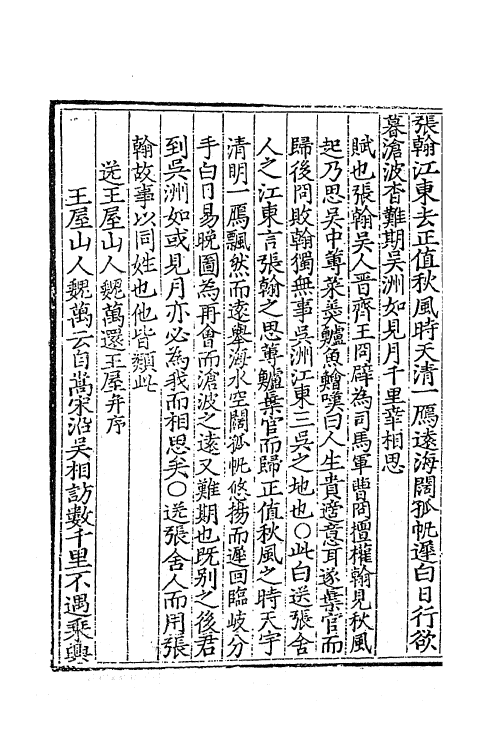 張翰江東去正值秋風時天清一鴈遠海闊孤帆遲白日行欲
暮滄波杳難期吳洲如見月千里幸相思
賦也張翰吳人晋齊王冏辟為司馬軍曹冏擅權翰見秋風
起乃思吳中蓴菜羮鱸魚鱠嘆曰人生貴適意耳遂棄官而
歸後冏敗翰獨無事吳洲江東三吳之地也○此白送張舍
人之江東言張翰之思蓴鱸棄官而歸正值秋風之時天宇
清明一鴈飄然而遠舉海水空闊孤帆悠揚而遲回臨岐分
手白日易晚圖為再會而滄波之遠又難期也既别之後君
到吳洲如或見月亦必為我而相思矣○送張舍人而用張
翰故事以同姓也他皆類此
送王屋山人魏萬還王屋并序
王屋山人魏萬云自嵩宋沿吳相訪數千里不遇乘興